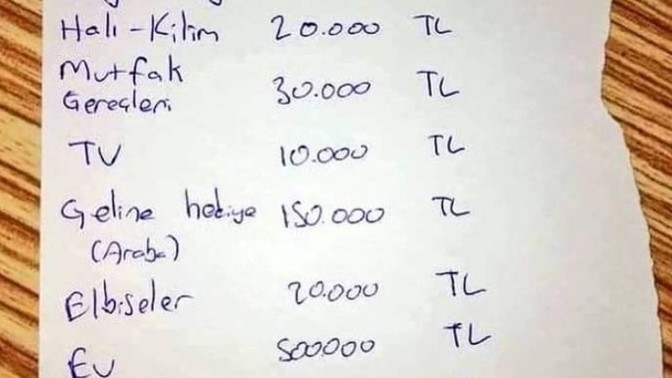 Halı - Kilim 20.000 TL
Mutfak
Gereçleri 30.000 TL
TV 10.000 TL
Geline hediye 150.000 TL
(Araba)
Elbiseler 20.000 TL
Ev 500000 TL